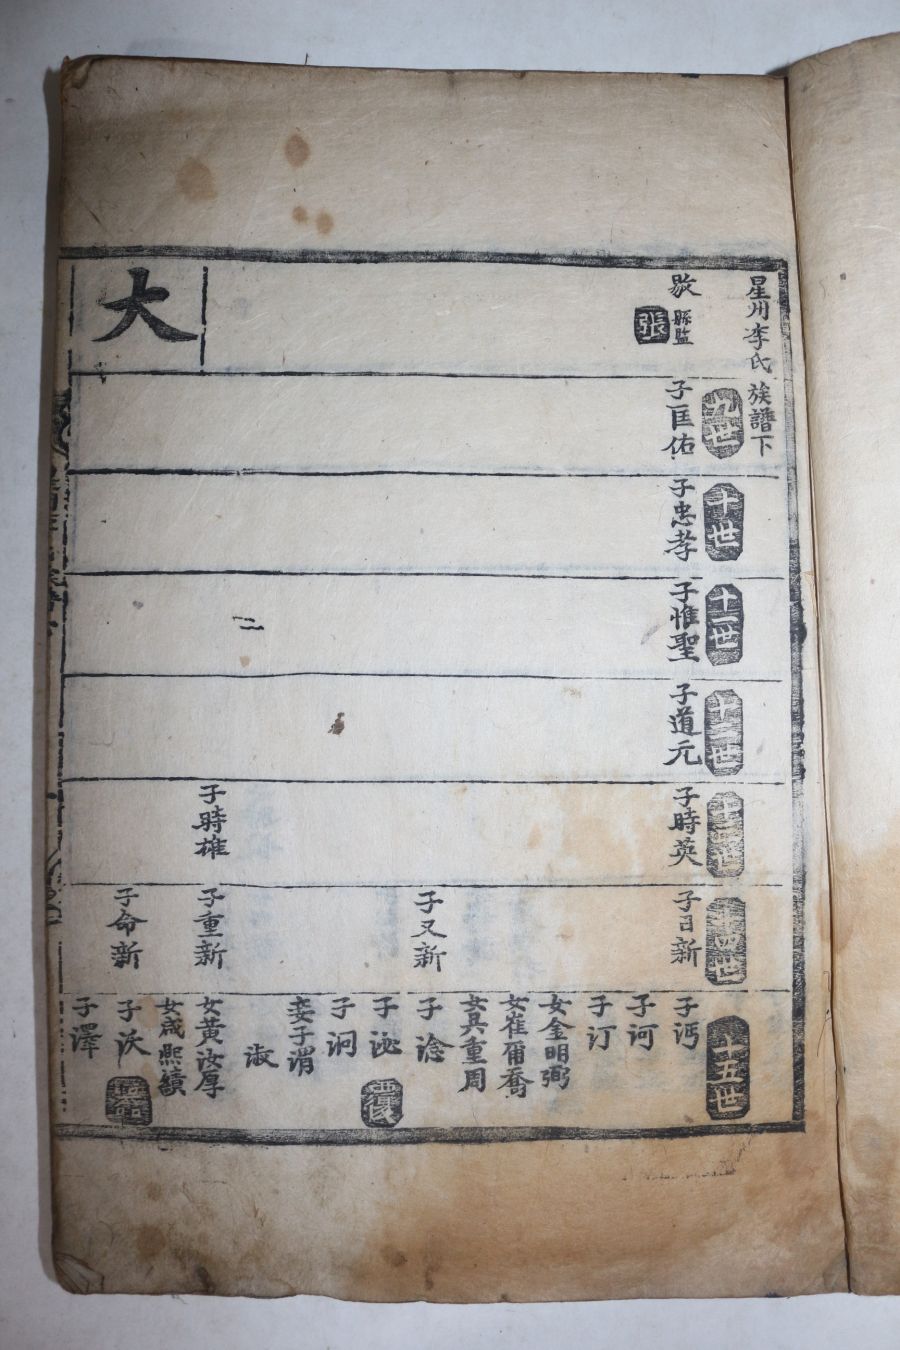 星州李氏族譜下
縣監
張
九世
子匡佑
十世
子忠孝
十一世
子惟聖
十二世
子道元
十三世
子時英
子時雄
十四世
子日新
子又新
子重新
子命新
十五世
子沔
子河
子汀
女金明弼
女崔爾喬
女具重周
子淰
子泌
子泂
妾子渭
淑
女黃汝厚
女成熙績
子沃
子澤
二
大